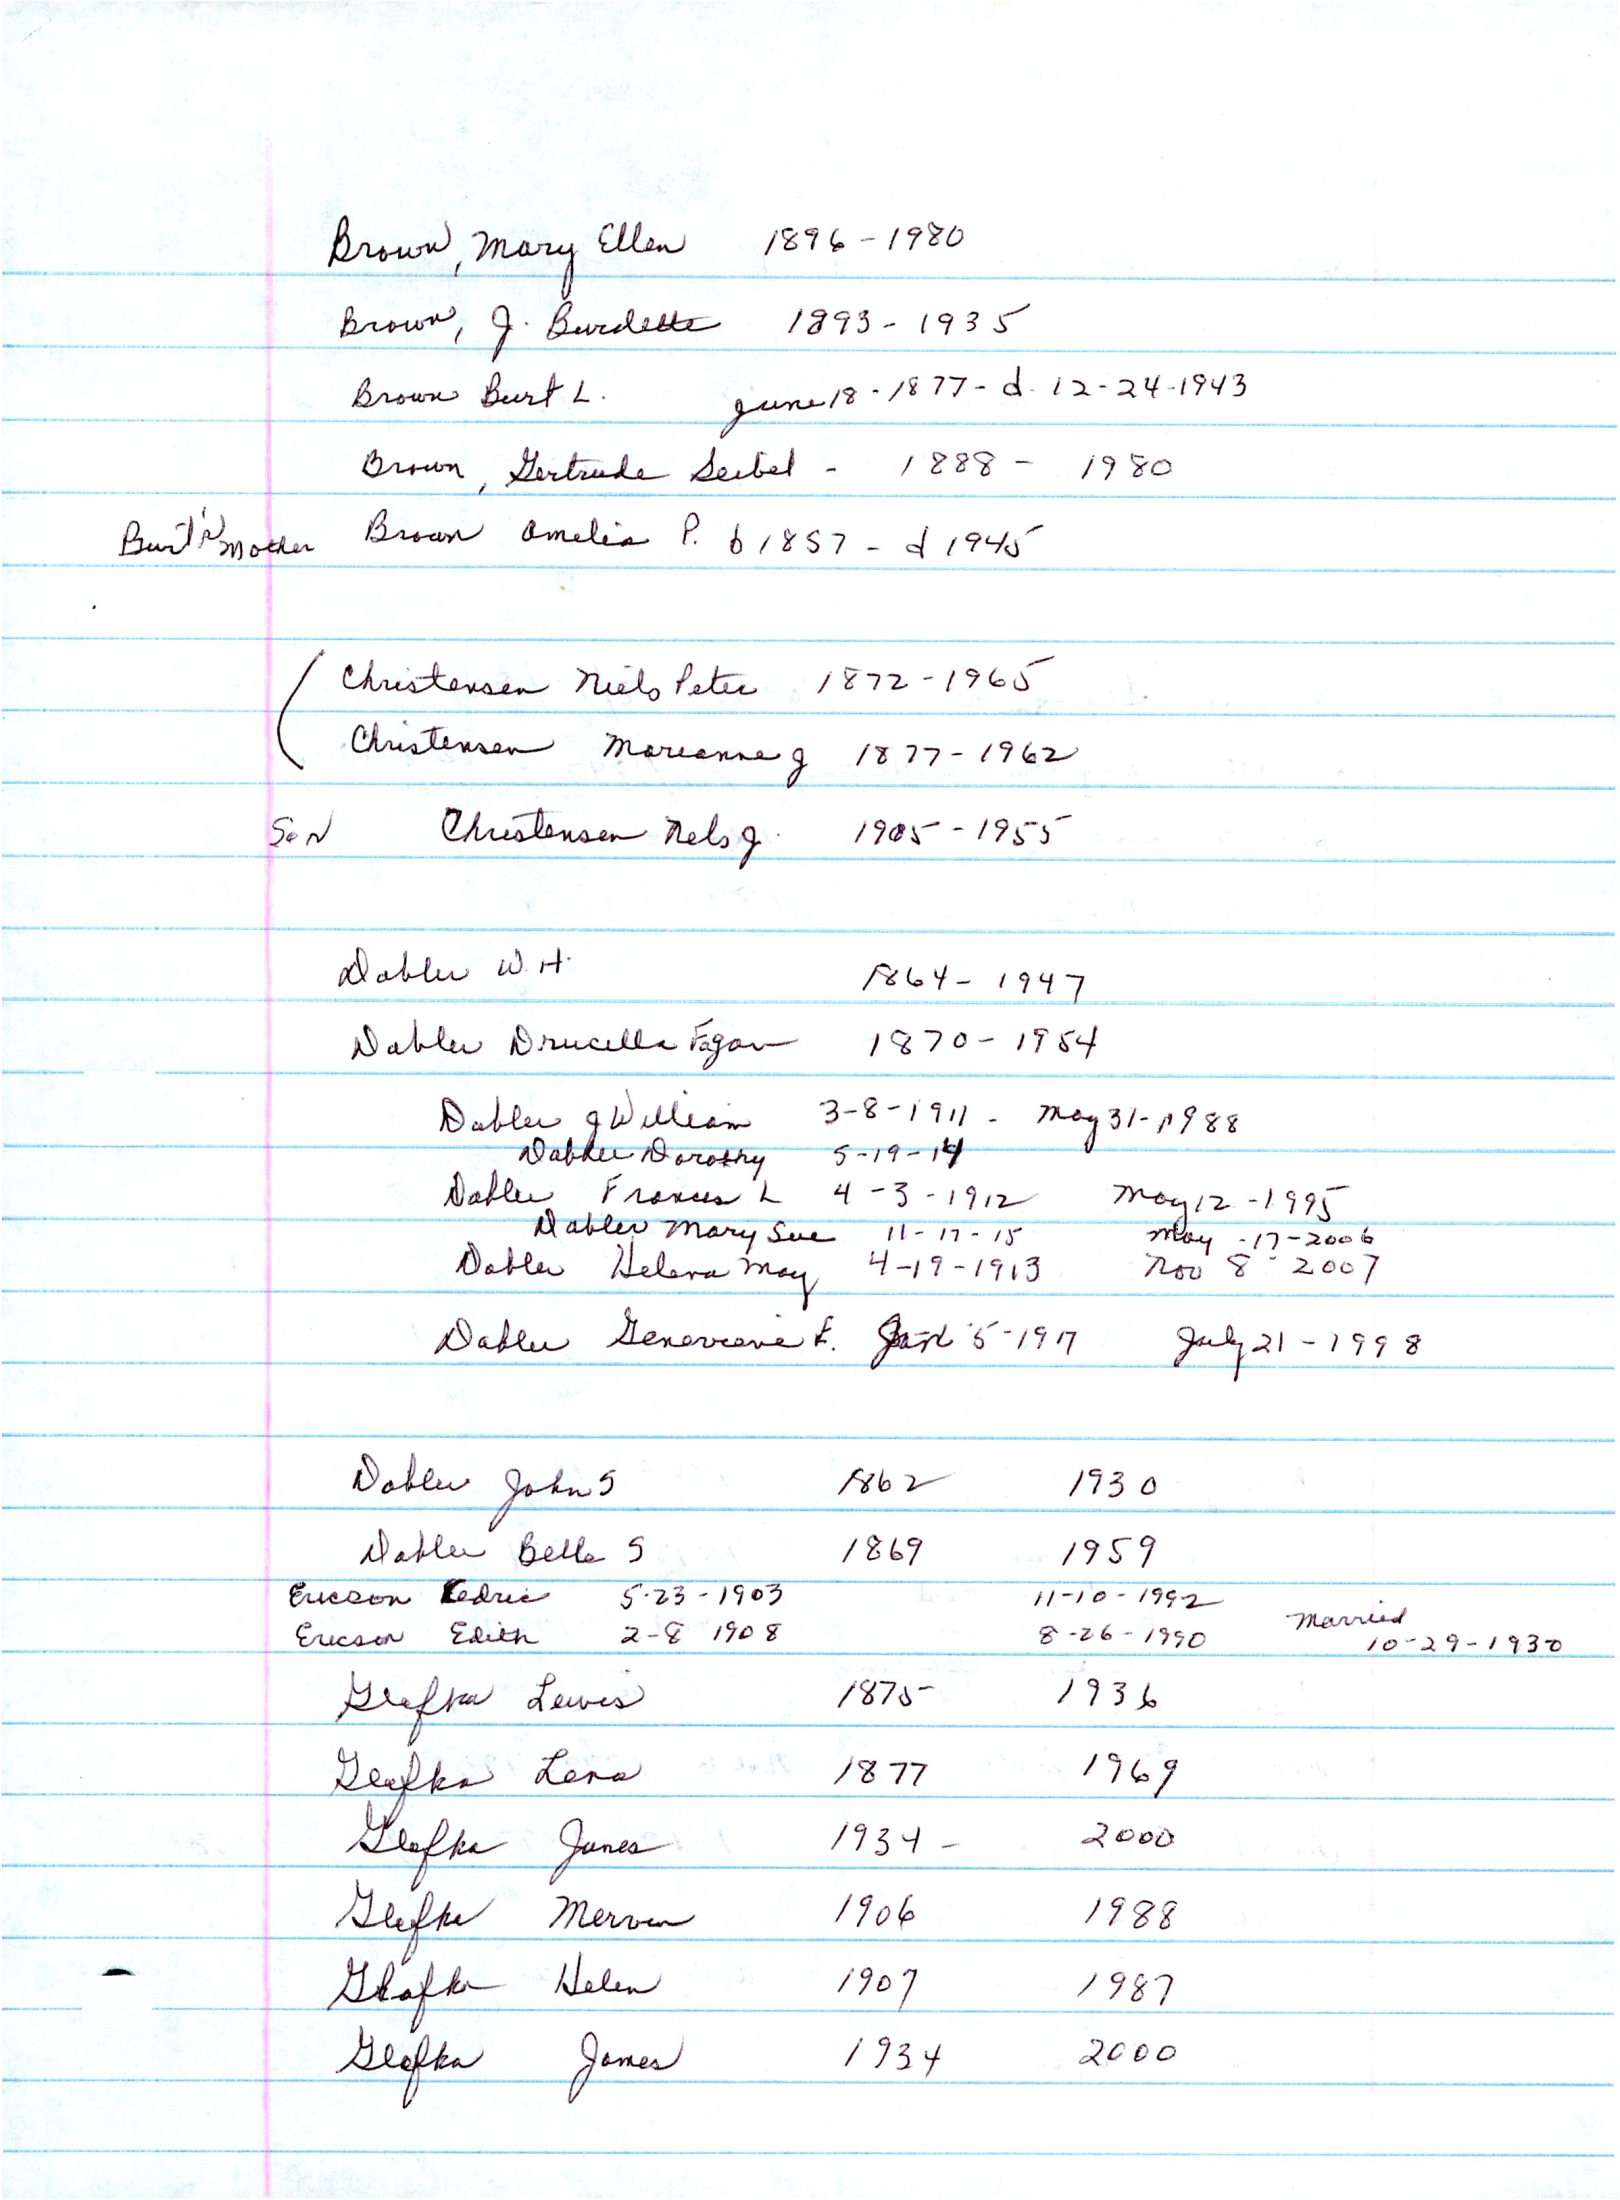 Brown, Mary Ellen 1896-1980
Brown, J. Burdette 1893-1935
Brown Burt L. June 18-1877-d. 12-24-1943
Brown, Gertrude Seibel - 1888- 1980
Burt's Mother Brown Amelia P. b 1857-d 1945
Christensen Niels Peter 1872-1965
Christensen Marianne J 1877-1962
Son Christensen Nels J. 1905-1955
Dobler W.H. 1864-1947
Dobler Drucella Fagan 1870-1954
Dobler J William 3-8-1911 - May 31-1988
Dobler Dorothy 5-19-14
Dobler Frances L 4-3-1912 May 12-1995
Dobler Mary Sue 11-17-15 May -17-2006
Dobler Helena May 4-19-1913 Nov 8-2007
Dobler Genevieve F. 5-1917 July 21-1998
Dobler John S 1862 1930
Dobler Belle S 1869 1959
Ericson Cedric 5-23-1903 11-10-1992
Ericson Edith 2-8 1908 8-26-1990 Married 10-29-1930
Glafka Lewis 1875- 1936
Glafka Lena 1877 1969
Glafka James 1934- 2000
Glafka Mervin 1906 1988
Glafka Helen 1907 1987
Glafka James 1934 2000